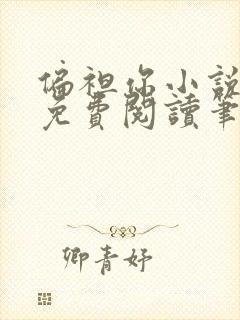 偏袒你小說
免費閱讀筆
卿青妤